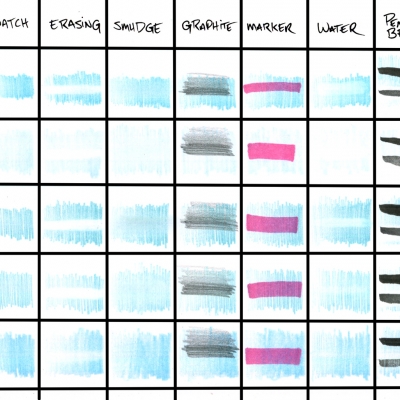 ATCH ERASING SMUDGE GRAPHITE MARKER WATER